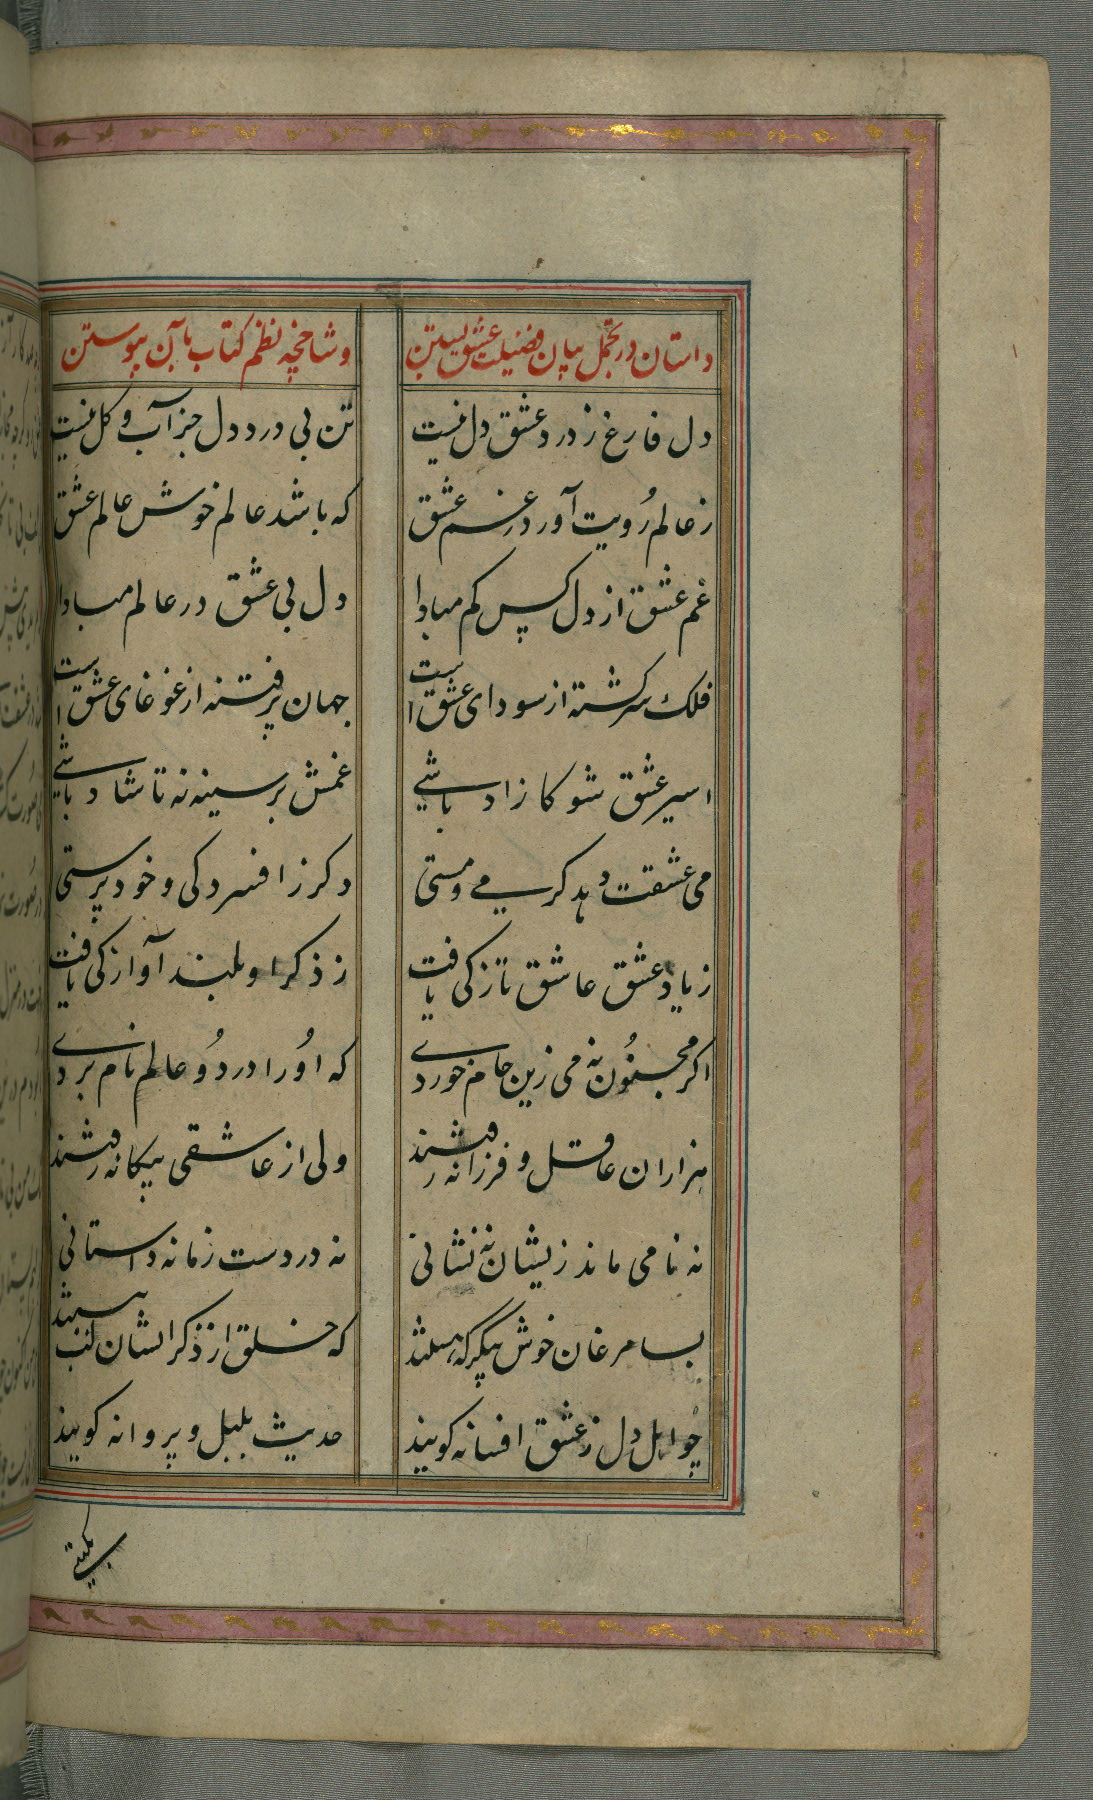 داستان در تجمل بیان فضیلت عشق بستن وشاخچه نظم کتاب بآن پیوستن
دل فارغ ز درد عشق دل نیست تن بی درد دل جز آب و کل نیست
ز عالم رُویت آورد در غم عشق که باشد عالم خوش عالم عشق
غم عشق از دل کس کم مبادا دل بی عشق در عالم مبادا
فلک سرکشته از سودای عشق است جهان پر فتنه از غوغای عشق است
اسیر عشق شو کازاد باشی غمش بر سینه نه تا شاد باشی
می عشقت دهد کرمی و مستی دکر زافسردکی و خود پرستی
ز یاد عشق عاشق تازکی یافت ز ذکر او بلند آوازکی یافت
اکر مجنُون نه می زین جام خوردی که اُورا در دُو عالم نام بردی
هزاران عاقل و فرزانه رفتند ولی از عاشقی بیکانه رفتند
نه نامی ماند زیشان نه نشانی نه در دست زمانه داستانی
بسا مرغان خوش پیکر که هستند که خلق از ذکر ایشان لب ببستند
چو اهل دل ز عشق افسانه کویند حدیث بلبل و پروانه کویند
بکیتی